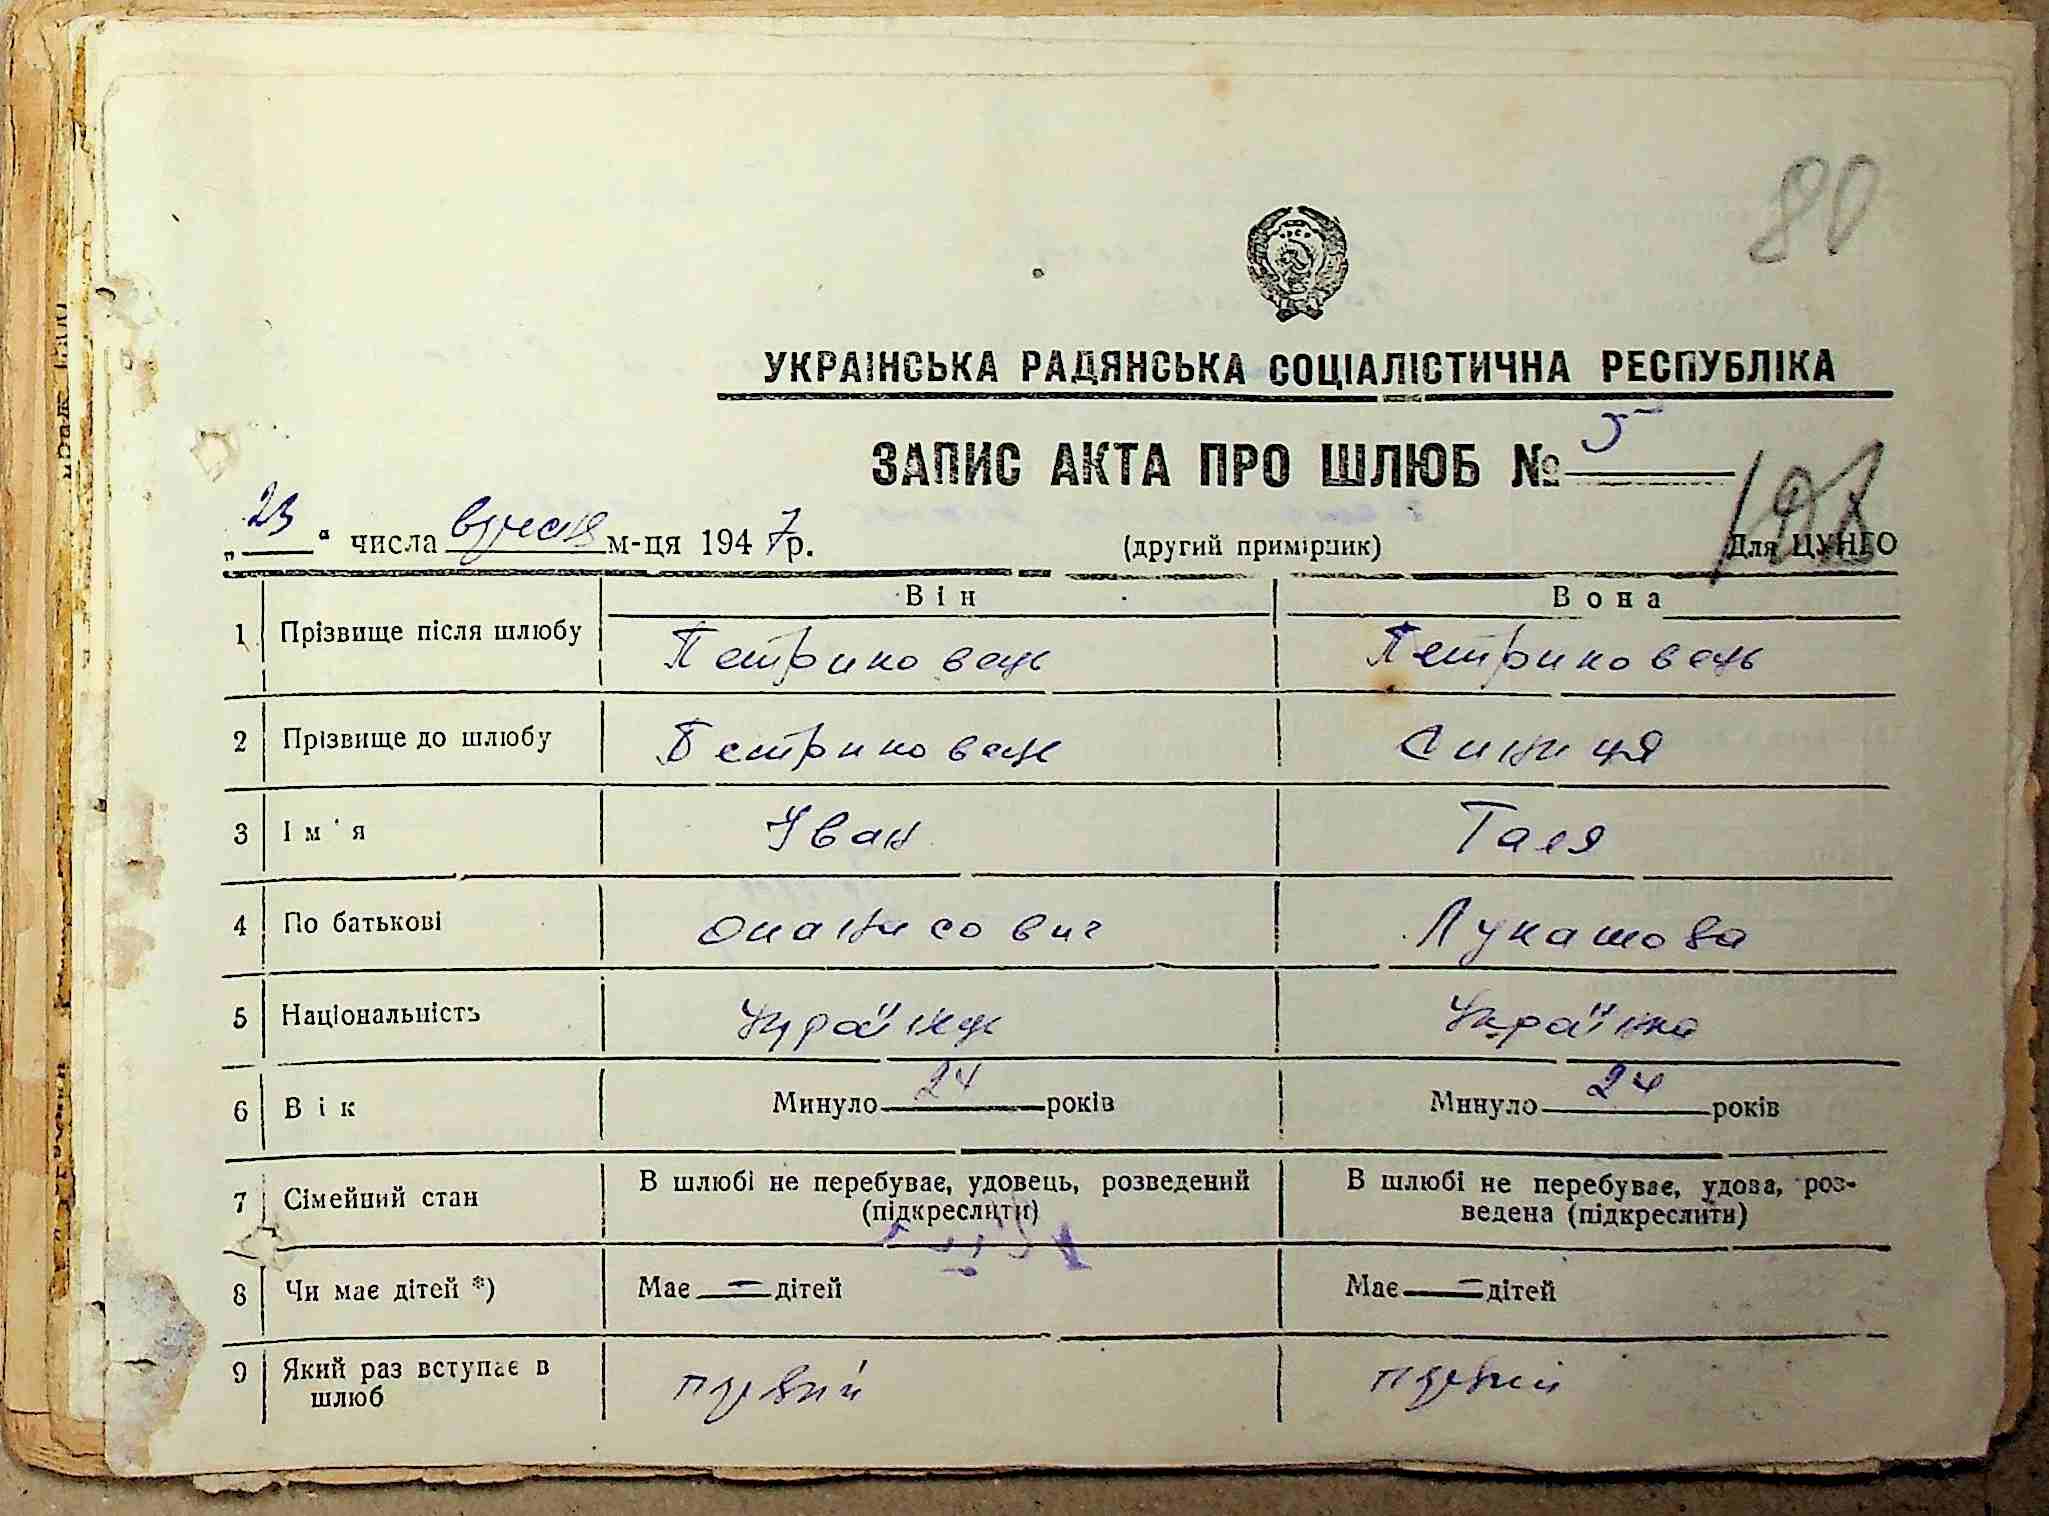 80
УКРАІНСЬКА РАДЯНСЬКА СОЦІАЛІСТИЧНА РЕСПУБЛІКА
ЗАПИС АКТА ПРО ШЛЮБ № 5
„23“ числа вресня м-ця 1947 р. (другий примірник) Для ЦУНГО
Він Вона
1 Прізвище після шлюбу Петриковець Петриковець
2 Прізвище до шлюбу Петриковець Синиця
3 Ім'я Іван Галя
4 По батькові Опанасович Лукашова
5 Національність Українець Українка
6 Вік Минуло 24 років Минуло 24 років
7 Сімейний стан В шлюбі не перебуває, удовець, розведений (підкреслити) В шлюбі не перебуває, удова, роз-
ведена (підкреслити)
8 Чи має дітей *) Має — дітей Має — дітей
9 Який раз вступає в шлюб первий первий